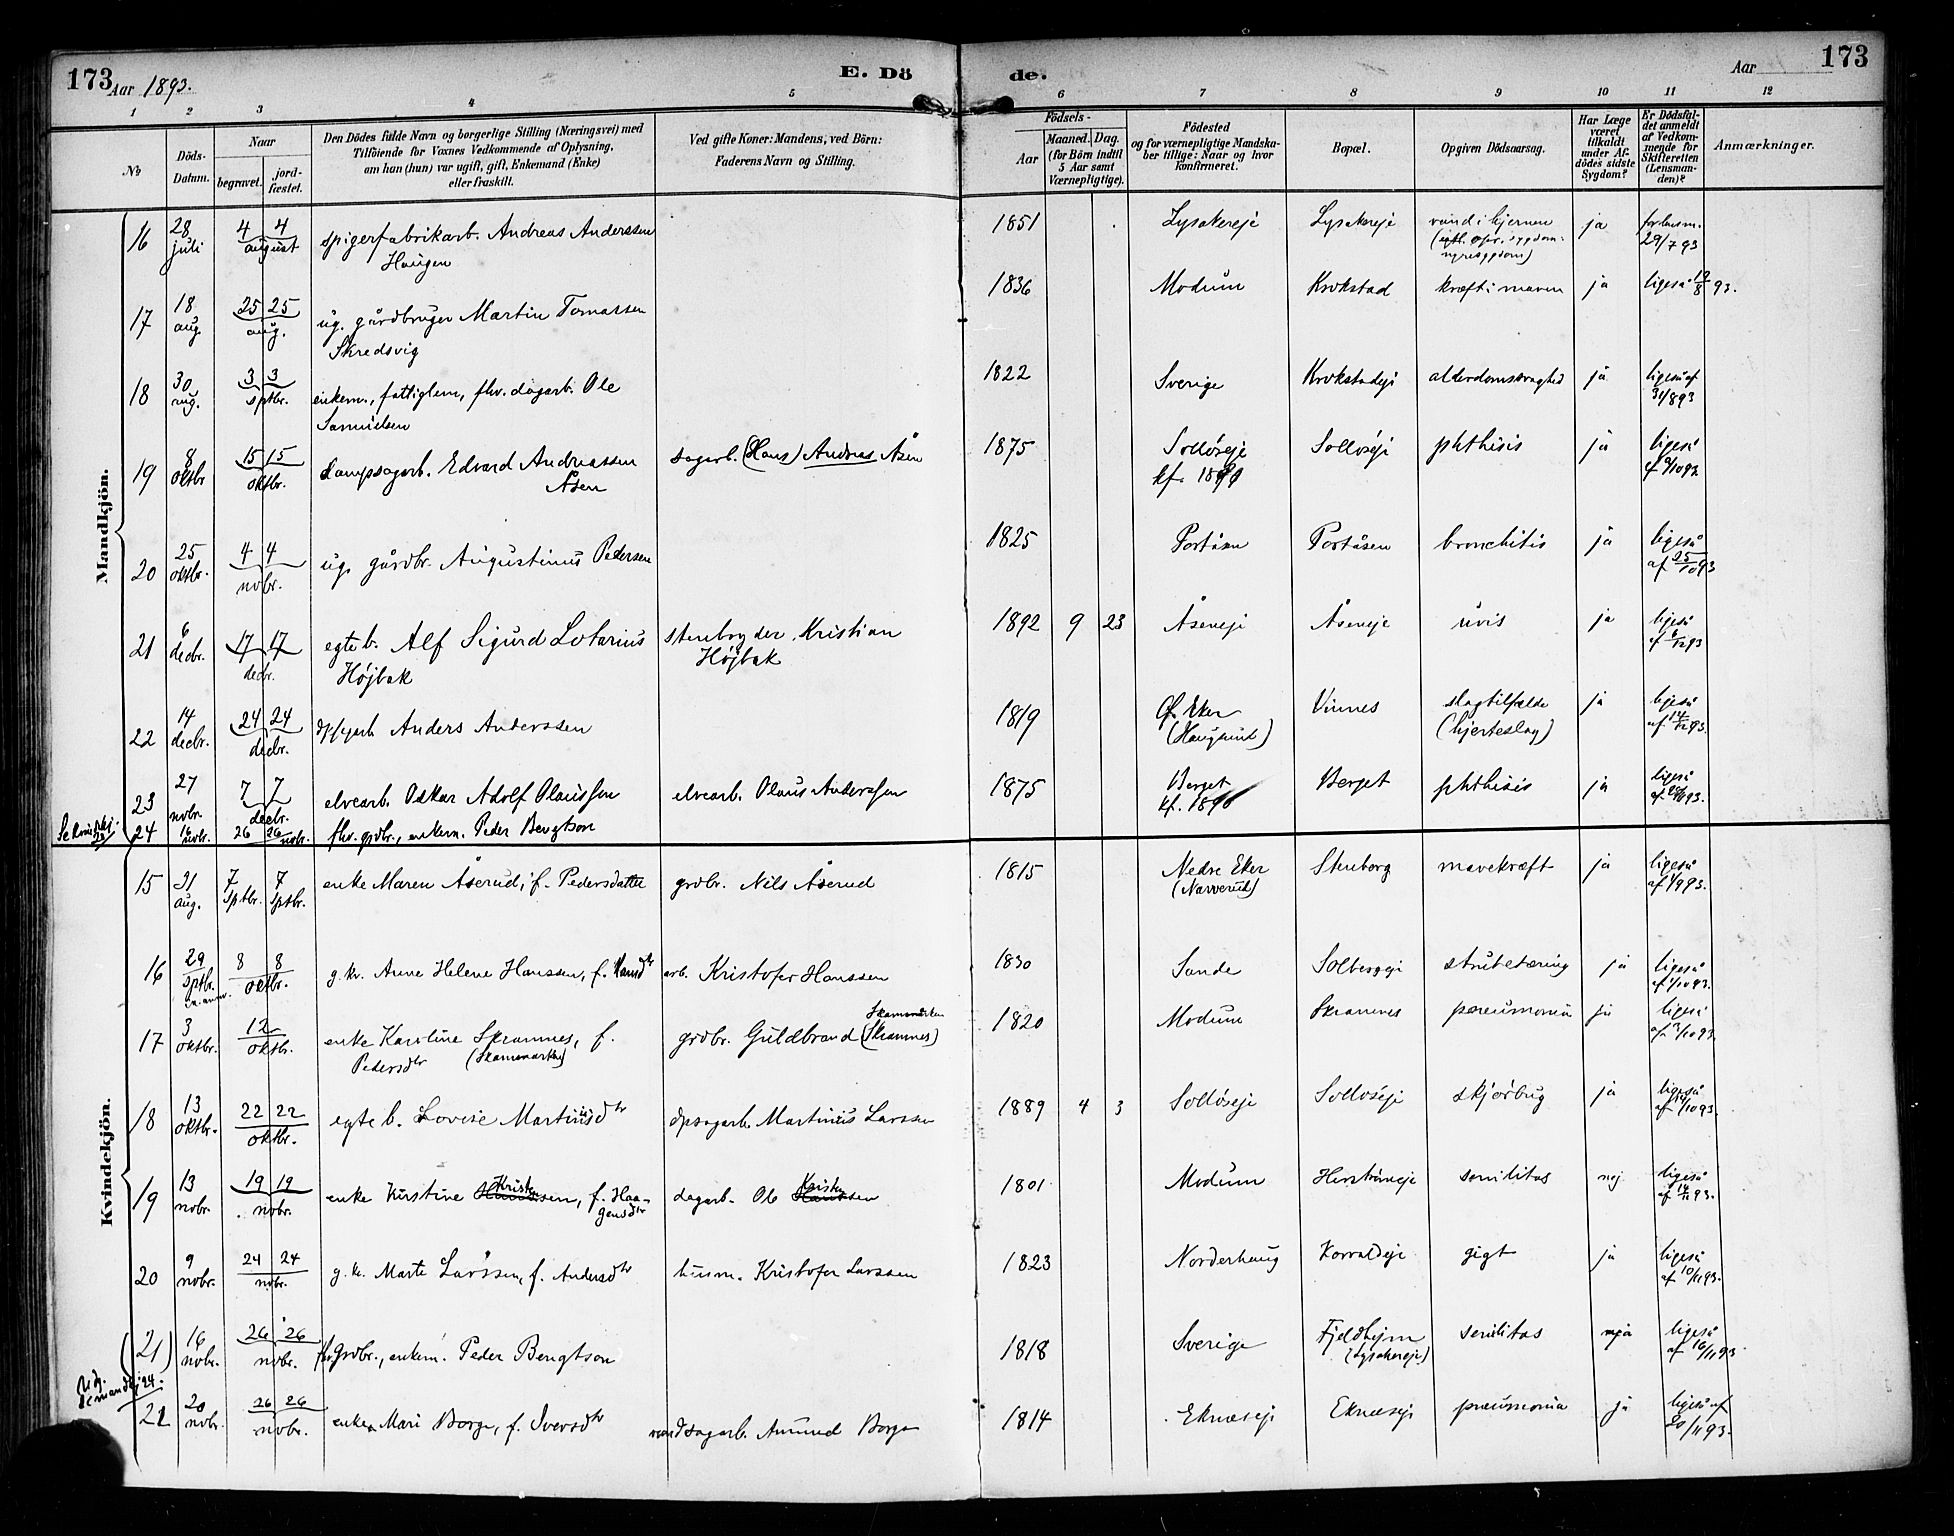 173 Aar 1893. E. Dö de. Aar 173
1 2 3 4 5 6 7 8 9 10 11 12
No
Döds-Datum.
Naar begravet. jordfæstet.
Den Dödes fulde Navn og borgerlige Stilling (Næringsvei) med
Tilföiende for Voxnes Vedkommende af Oplysning,
om han (hun) var ugift, gift, Enkemand (Enke)
eller fraskilt.
Ved gifte Koner: Mandens, ved Börn:
Faderens Navn og Stilling.
Födsels-
Aar Maaned. Dag.
(for Börn indtil
5 Aar samt
Værnepligtige).
Födested
og for værnepligtige Mandskaber tillige: Naar og hvor
konfirmeret.
Bopæl.
Opgiven Dödsaarsag.
Har Læge
været
tilkaldt
under Afdödes sidste
Sygdom?
Er Dödsfaldet anmeldt
af Vedkommende for
Skifteretten
(Lensmanden)?
Anmærkninger.
Mandkjön.
16 28 juli 4 4 august spigerfabrikarb. Andreas Anderssen 1851 Lysakereje Lysakereje vand i hjernen ja
Haugen 29/7 93
17 18 aug. 25 25 aug. ug. gårdbruger Martin Tomassen 1836 Modum Krokstad kræft i maven ja ligeså 19/8 93.
Skredsvig
18 30 aug. 3 3 sptbr. enkem., fattiglem, fhv. dagarb. Ole 1822 Sverige Krokstadeje alderdomssvaghed ja ligeså af 31/8 93
Samuelsen
19 8 oktbr 15 15 oktbr. dampsagarb. Edvard Andreassen sagarb. (Hans) Andreas Åsen 1875 Solløseje Solløseje phthisis ja ligeså
Åsen kf.
20 25 oktbr. 4 4 novbr. ug. gårdbr. Augustinus Pedersen 1825 Portåsen Portåsen bronchitis ja ligeså af 25/10 93
21 6 decbr. 17 17 decbr. egte b. Alf Sigurd Lotarius stenbryder Kristian 1892 9 23 Åseneje Åseneje uvis ja ligeså af 6/12 93
Højbak Højbak
22 14 decbr. 24 24 decbr. Anders Anderssen 1819 Øf. Eker Vinnes slagtilfælde ja ligeså af 14/12 93.
(Haugsund) (hjerteslag)
23 27 novbr. 7 7 decbr. elvearb. Oskar Adolf Olaussen elvearb. Olaus Anderssen 1875 Berget Berget phthisis ja ligeså
kf. 1890
24 16 novbr. 26 26 novbr. fhv. grdbr., enkem. Peder Bengtson
Kvindekjön.
15 31 aug. 7 sptbr. 7 sptbr. enke Maren Åserud, f. Pedersdatter grdbr. Nils Åserud 1815 Nedre Eker Stenborg mavekræft ja ligeså af 1/9 93.
(Narverud)
16 29 sptbr. 8 8 oktbr. g. kv. Anne Helene Hanssen, f. arb. Kristofer Hanssen 1830 Sande Solbergeje strubetæring ja ligeså
17 3 oktbr. 12 oktbr. enke Karoline Skramnes, f. grdbr. Guldbrand (Skramnes) 1820 Modum Skramnes pneumonia ja ligeså af 3/10 93.
Pedersdtr
18 13 oktbr. 22 22 oktbr. egte b. Lovise Martinusdtr dpsagarb. Martinius Larssen 1889 4 3 Solløseje Solløseje skjørbug ja ligeså
19 13 novbr. 19 19 novbr. enke Kirstine Kristensen, f. Haagensdtr dagarb. Ole Kristensen 1801 Modum senilitas nej ligeså af 14/11 93.
20 9 novbr. 24 24 novbr. g. k. Marte Larssen, f. Andersdtr husm. Kristofer Larssen 1823 Norderhaug gigt ja ligeså af 10/11 93.
(21) 16 novbr. 26 26 novbr. fhv. grdbr., enkem. Peder Bengtson 1818 Sverige Fjeldhejm senilitas ligeså af 16/11 93.
(Lysakereje)
22 20 novbr. 26 26 novbr. enke Mari Borge, f. Iversdtr vandsagarb. Amund Borge 1814 Eknæseje Eknæseje pneumonia ja ligeså af 20/11 93.